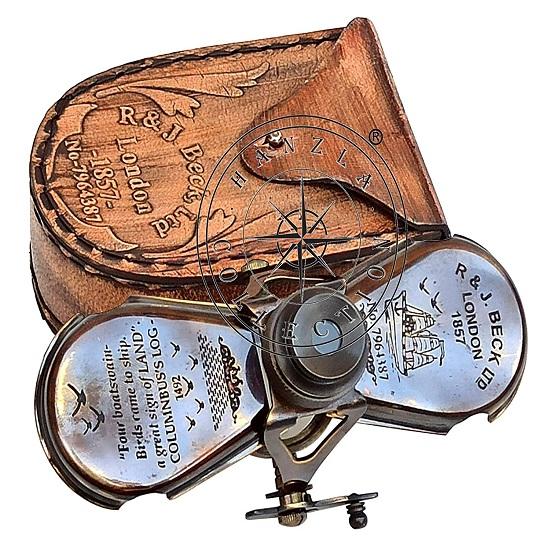 R & J. Beck Ltd
London
-1857-
No-7964387
HANZLA
COLLECTION
®
R & J. BECK LTD
LONDON
1857
"Four boatswain-
Birds came to ship.
a great sign of LAND"
COLUMINBUS'S LOG -
1492